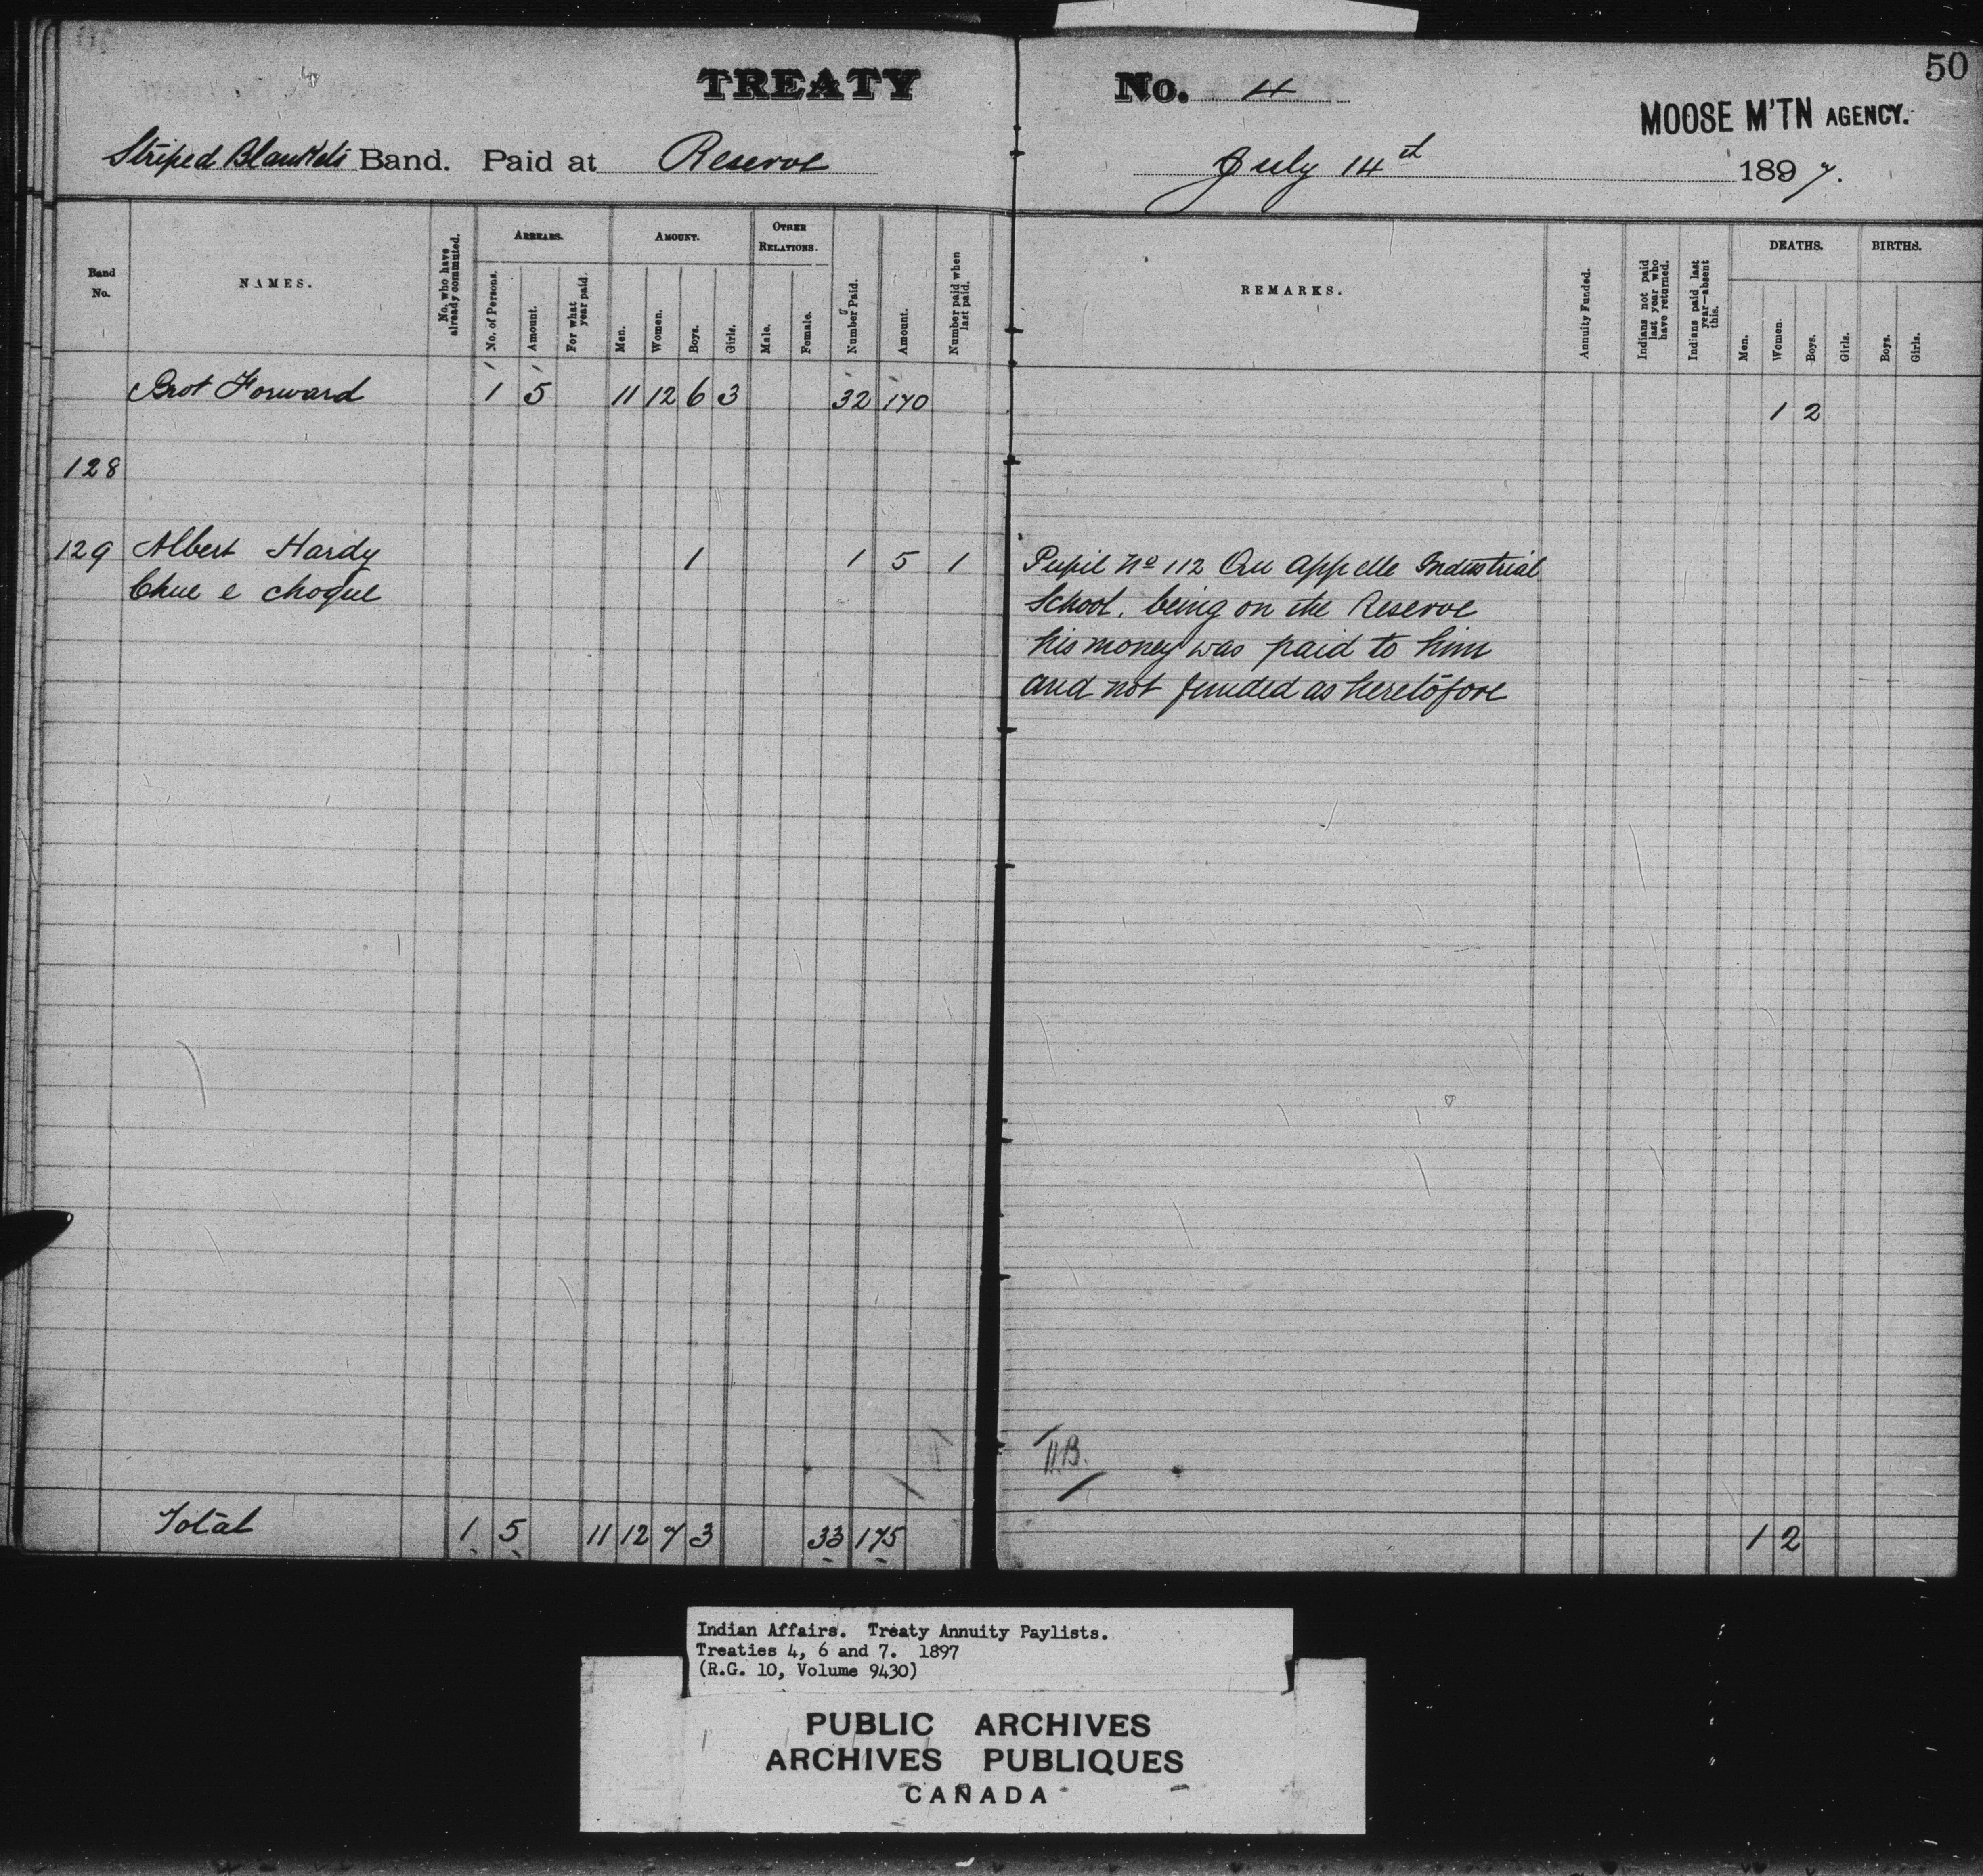 50
TREATY No. 4
MOOSE M'TN AGENCY.
Striped Blankets Band. Paid at Reserve July 14th 1897.
Band No.
NAMES.
No. who have already commuted.
ARREARS.
No. of Persons.
Amount.
For what year paid.
AMOUNT.
Men.
Women.
Boys.
Girls.
OTHER RELATIONS.
Male.
Female.
Number Paid.
Amount.
Number paid when last paid.
REMARKS.
Annuity Funded.
Indians not paid last year who have returned.
Indians paid last year—absent this.
DEATHS.
Men.
Women.
Boys.
Girls.
BIRTHS.
Boys.
Girls.
Brot Forward 1 5 11 12 6 3 32 170 1 2
128
129 Albert Hardy 1 1 5 1 Pupil No 112 Qu Appelle Industrial
Chue e choque School. being on the Reserve
his money was paid to him
and not funded as heretofore
Total 1 5 11 12 7 3 33 175 1 2
Indian Affairs. Treaty Annuity Paylists.
Treaties 4, 6 and 7. 1897
(R.G. 10, Volume 9430)
PUBLIC ARCHIVES
ARCHIVES PUBLIQUES
CANADA